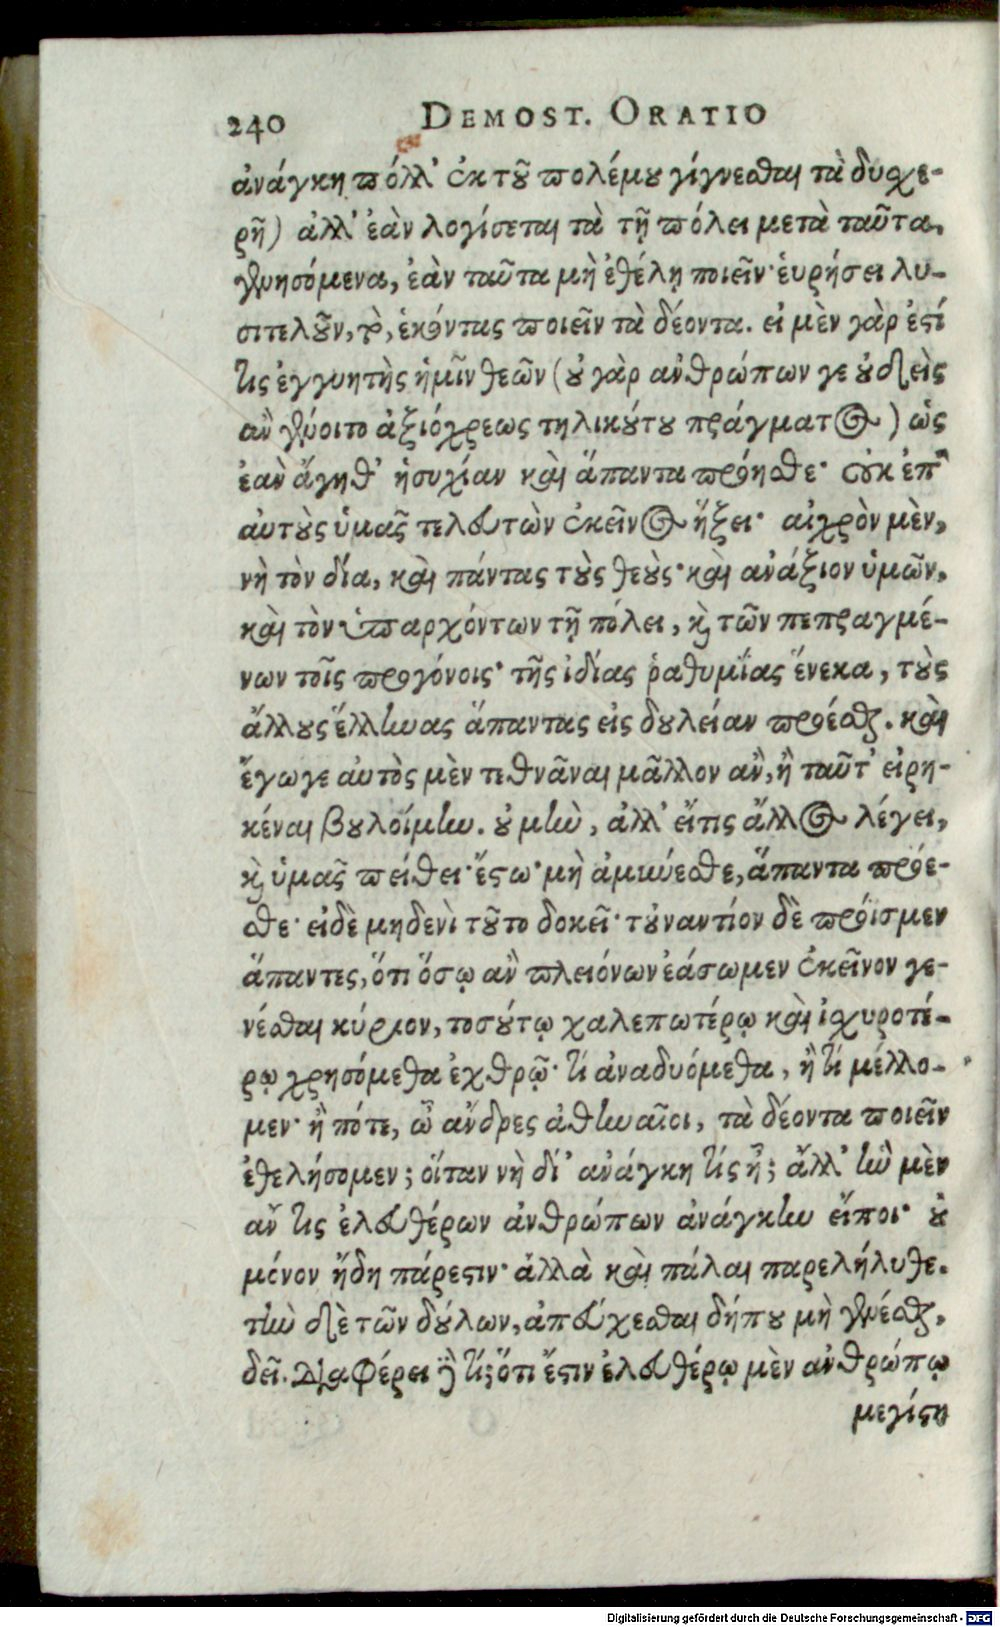 240 DEMOST. ORATIO
ἀνάγκη πόλλ' ἐκ τοῦ πολέμου γίγνεσθαι τὰ δυσχε-
ρῆ) ἀλλ' ἐὰν λογίσεται τὰ τῇ πόλει μετὰ ταῦτα,
γενησόμενα, ἐὰν ταῦτα μὴ ἐθέλῃ ποιεῖν· ἑυρήσει λυ-
σιτελοῦν, τὸ, ἑκόντας ποιεῖν τὰ δέοντα. εἰ μὲν γὰρ ἐστί
τις ἐγγυητὴς ἡμῖν θεῶν (οὐ γὰρ ἀνθρώπων γε οὐδεὶς
ἂν γένοιτο ἀξιόχρεως τηλικούτου πράγματος) ὡς
ἐὰν ἄγηθ' ἡσυχίαν καὶ ἅπαντα πρόησθε· οὐκ ἐπ'
ἀυτοὺς ὑμᾶς τελευτῶν ἐκεῖνος ἥξει· αἰχρὸν μὲν,
νὴ τὸν δία, καὶ πάντας τοὺς θεοὺς· καὶ ἀνάξιον ὑμῶν,
καὶ τὸν ὑπαρχόντων τῇ πόλει, καὶ τῶν πεπραγμέ-
νων τοῖς προγόνοις· τῆς ἰδίας ῥαθυμίας ἕνεκα, τοὺς
ἄλλους ἕλληνας ἅπαντας εἰς δουλείαν προέσθαι. καὶ
ἔγωγε αὐτὸς μὲν τεθνᾶναι μᾶλλον ἂν, ἢ ταῦτ' εἰρη-
κέναι βουλοίμην. οὐ μὴν, ἀλλ' εἴ τις ἄλλος λέγει,
καὶ ὑμᾶς πείθει· ἔστω· μὴ ἀμύνεσθε, ἅπαντα πρόε-
σθε· εἰ δὲ μηδενὶ τοῦτο δοκεῖ· τοὐναντίον δὲ πρόισμεν
ἅπαντες, ὅτι ὅσῳ ἂν πλειόνων ἐάσωμεν ἐκεῖνον γε-
νέσθαι κύριον, τοσούτῳ χαλεπωτέρῳ καὶ ἰχυροτέ-
ρῳ χρησόμεθα ἐχθρῷ· τί ἀναδυόμεθα, ἢ τί μέλλο-
μεν· ἢ πότε, ὦ ἄνδρες ἀθηναῖοι, τὰ δέοντα ποιεῖν
ἐθελήσομεν; ὅταν νὴ δί' ἀνάγκη τίς ᾖ; ἀλλ' ἣν μὲν
ἄν τις ἐλευθέρων ἀνθρώπων ἀνάγκην εἴποι· οὐ
μόνον ἤδη πάρεστιν· ἀλλὰ καὶ πάλαι παρελήλυθε.
τὴν δὲ τῶν δούλων, ἀπεύχεσθαι δήπου μὴ γενέσθαι,
δεῖ. διαφέρει δὲ τί; ὅτι ἔστιν ἐλευθέρῳ μὲν ἀνθρώπῳ
μεγίστη
Digitalisierung gefördert durch die Deutsche Forschungsgemeinschaft - DFG